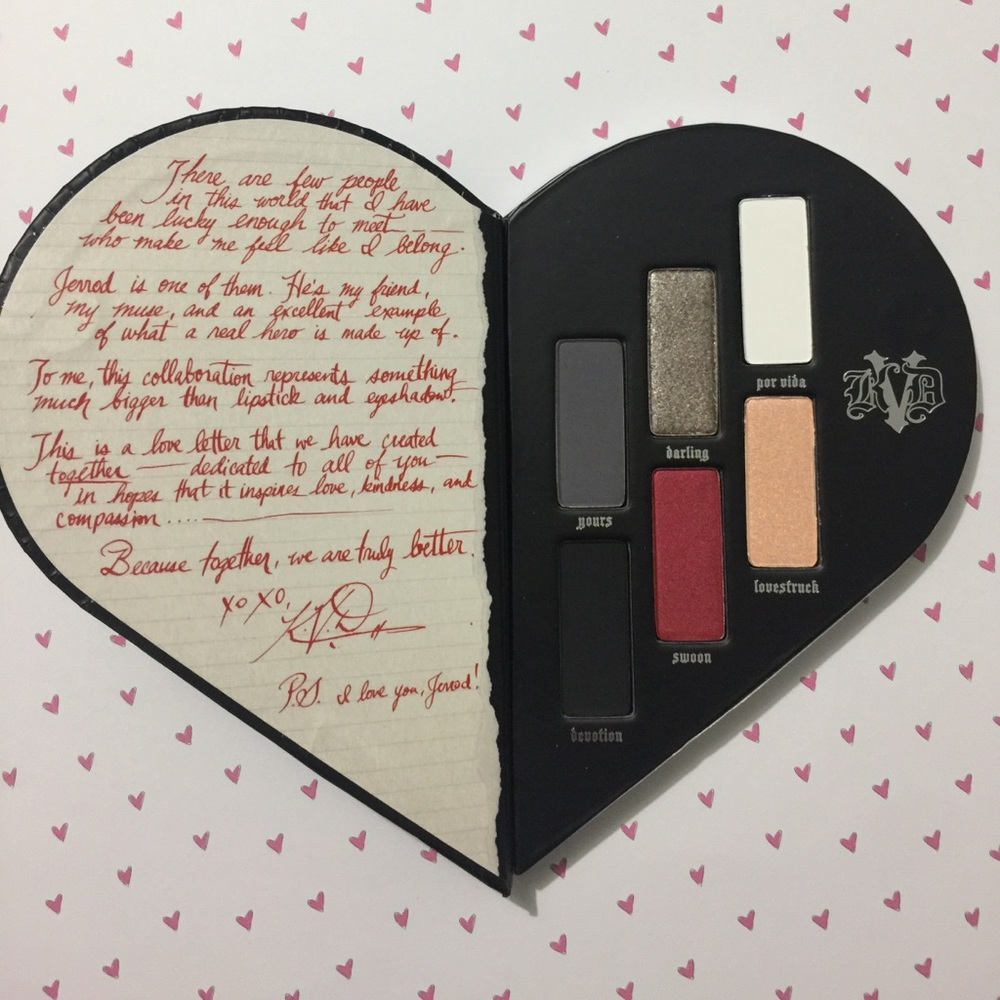 There are few people
in this world that I have
been lucky enough to meet ——
who make me feel like I belong.
Jerrod is one of them. He's my friend,
my muse, and an excellent example
of what a real hero is made up of.
To me, this collaboration represents something
much bigger than lipstick and eyeshadow.
This is a love letter that we have created
together — dedicated to all of you —
in hopes that it inspires love, kindness, and
compassion ....
Because together, we are truly better.
xoxo,
K.V.D.
P.S. I love you, Jerrod!
por vida
darling
yours
lovestruck
swoon
devotion
KVD